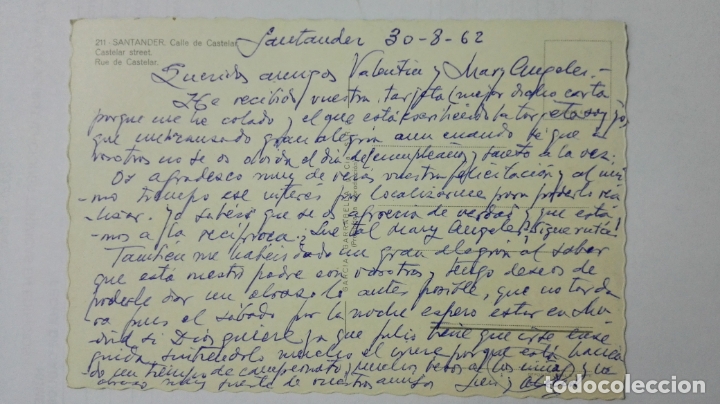 211 - SANTANDER: Calle de Castelar
Castelar street.
Rue de Castelar.
Santander 30-8-62
Queridos amigos Valentin y Mary Angeles.-
He recibido vuestra tarjeta (mejor dicho carta
porque me he colado, y el que está escribiendo la tarjeta soy yo,
que me ha causado gran alegria aun cuando sé que a
vosotros no se os olvida el dia de cumpleaños y santo a la vez.
Os agradezco muy de veras vuestra felicitación y al mis-
mo tiempo ese interés por localizarme para poderlo rea-
lizar. Ya sabéis que se os aprecia de verdad y que esta-
mos a la reciproca. ¿Que tal Mary Angeles, sigue
Tambien me habeis dado un gran alegrón al saber
que está nuestro padre con vosotros y tengo deseos de
poderle dar un abrazo lo antes posible, que no tarda-
ra pues el sábado por la noche espero estar en
si Dios quiere ya que Julio tiene que irse ense-
guida, sintiendolo mucho el porque está hacien-
do un tiempo de campeonato, muchos besos a los niños y un
abrazo muy fuerte de vuestros amigos
GARCIA GARRABELLA Y Cia.
todocoleccion.net